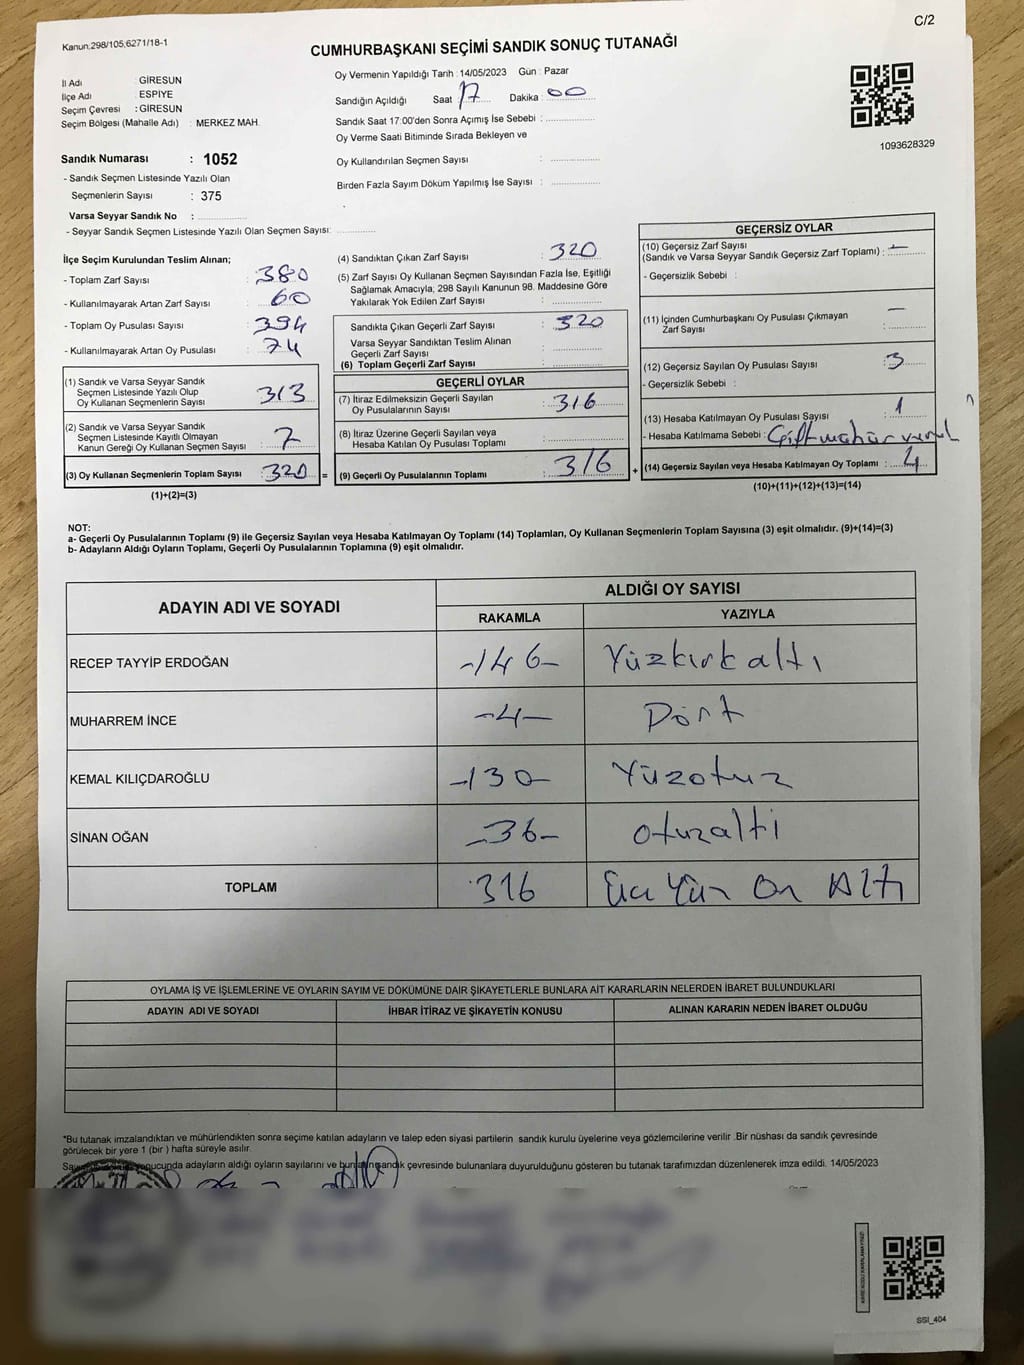 Kanun.298/105;6271/18-1
C/2
CUMHURBAŞKANI SEÇİMİ SANDIK SONUÇ TUTANAĞI
İl Adı : GİRESUN
İlçe Adı : ESPİYE
Seçim Çevresi : GİRESUN
Seçim Bölgesi (Mahalle Adı) : MERKEZ MAH.
Oy Vermenin Yapıldığı Tarih : 14/05/2023 Gün : Pazar
Sandığın Açıldığı Saat 17 Dakika : 00
Sandık Saat 17:00'den Sonra Açımış İse Sebebi :
Oy Verme Saati Bitiminde Sırada Bekleyen ve
Oy Kullandırılan Seçmen Sayısı :
Birden Fazla Sayım Döküm Yapılmış İse Sayısı :
1093628329
Sandık Numarası : 1052
- Sandık Seçmen Listesinde Yazılı Olan
Seçmenlerin Sayısı : 375
Varsa Seyyar Sandık No :
- Seyyar Sandık Seçmen Listesinde Yazılı Olan Seçmen Sayısı:
İlçe Seçim Kurulundan Teslim Alınan;
- Toplam Zarf Sayısı : 380
- Kullanılmayarak Artan Zarf Sayısı : 60
- Toplam Oy Pusulası Sayısı : 394
- Kullanılmayarak Artan Oy Pusulası : 74
(1) Sandık ve Varsa Seyyar Sandık
Seçmen Listesinde Yazılı Olup
Oy Kullanan Seçmenlerin Sayısı : 313
(2) Sandık ve Varsa Seyyar Sandık
Seçmen Listesinde Kayıtlı Olmayan
Kanun Gereği Oy Kullanan Seçmen Sayısı : 7
(3) Oy Kullanan Seçmenlerin Toplam Sayısı : 320 =
(1)+(2)=(3)
(4) Sandıktan Çıkan Zarf Sayısı : 320
(5) Zarf Sayısı Oy Kullanan Seçmen Sayısından Fazla İse, Eşitliği
Sağlamak Amacıyla, 298 Sayılı Kanunun 98. Maddesine Göre
Yakılarak Yok Edilen Zarf Sayısı :
Sandıkta Çıkan Geçerli Zarf Sayısı : 320
Varsa Seyyar Sandıktan Teslim Alınan
Geçerli Zarf Sayısı :
(6) Toplam Geçerli Zarf Sayısı :
GEÇERLİ OYLAR
(7) İtiraz Edilmeksizin Geçerli Sayılan
Oy Pusulalarının Sayısı : 316
(8) İtiraz Üzerine Geçerli Sayılan veya
Hesaba Katılan Oy Pusulası Toplamı :
(9) Geçerli Oy Pusulalarının Toplamı : 316 +
GEÇERSİZ OYLAR
(10) Geçersiz Zarf Sayısı
(Sandık ve Varsa Seyyar Sandık Geçersiz Zarf Toplamı) : —
- Geçersizlik Sebebi :
(11) İçinden Cumhurbaşkanı Oy Pusulası Çıkmayan
Zarf Sayısı : —
(12) Geçersiz Sayılan Oy Pusulası Sayısı : 3
- Geçersizlik Sebebi :
(13) Hesaba Katılmayan Oy Pusulası Sayısı : 1
- Hesaba Katılmama Sebebi : Çift mühür
(14) Geçersiz Sayılan veya Hesaba Katılmayan Oy Toplamı : 4
(10)+(11)+(12)+(13)=(14)
NOT:
a- Geçerli Oy Pusulalarının Toplamı (9) ile Geçersiz Sayılan veya Hesaba Katılmayan Oy Toplamı (14) Toplamları, Oy Kullanan Seçmenlerin Toplam Sayısına (3) eşit olmalıdır. (9)+(14)=(3)
b- Adayların Aldığı Oyların Toplamı, Geçerli Oy Pusulalarının Toplamına (9) eşit olmalıdır.
ADAYIN ADI VE SOYADI
ALDIĞI OY SAYISI
RAKAMLA YAZIYLA
RECEP TAYYİP ERDOĞAN -146- Yüzkırkaltı
MUHARREM İNCE -4- Dört
KEMAL KILIÇDAROĞLU -130- Yüzotuz
SİNAN OĞAN -36- otuzaltı
TOPLAM 316 Üç Yüz On Altı
OYLAMA İŞ VE İŞLEMLERİNE VE OYLARIN SAYIM VE DÖKÜMÜNE DAİR ŞİKAYETLERLE BUNLARA AİT KARARLARIN NELERDEN İBARET BULUNDUKLARI
ADAYIN ADI VE SOYADI İHBAR İTİRAZ VE ŞİKAYETİN KONUSU ALINAN KARARIN NEDEN İBARET OLDUĞU
*Bu tutanak imzalandıktan ve mühürlendikten sonra seçime katılan adayların ve talep eden siyasi partilerin sandık kurulu üyelerine veya gözlemcilerine verilir .Bir nüshası da sandık çevresinde
görülecek bir yere 1 (bir ) hafta süreyle asılır.
adayların aldığı oyların sayılarını ve sandık çevresinde bulunanlara duyurulduğunu gösteren bu tutanak tarafımızdan düzenlenerek imza edildi. 14/05/2023
SSI_404